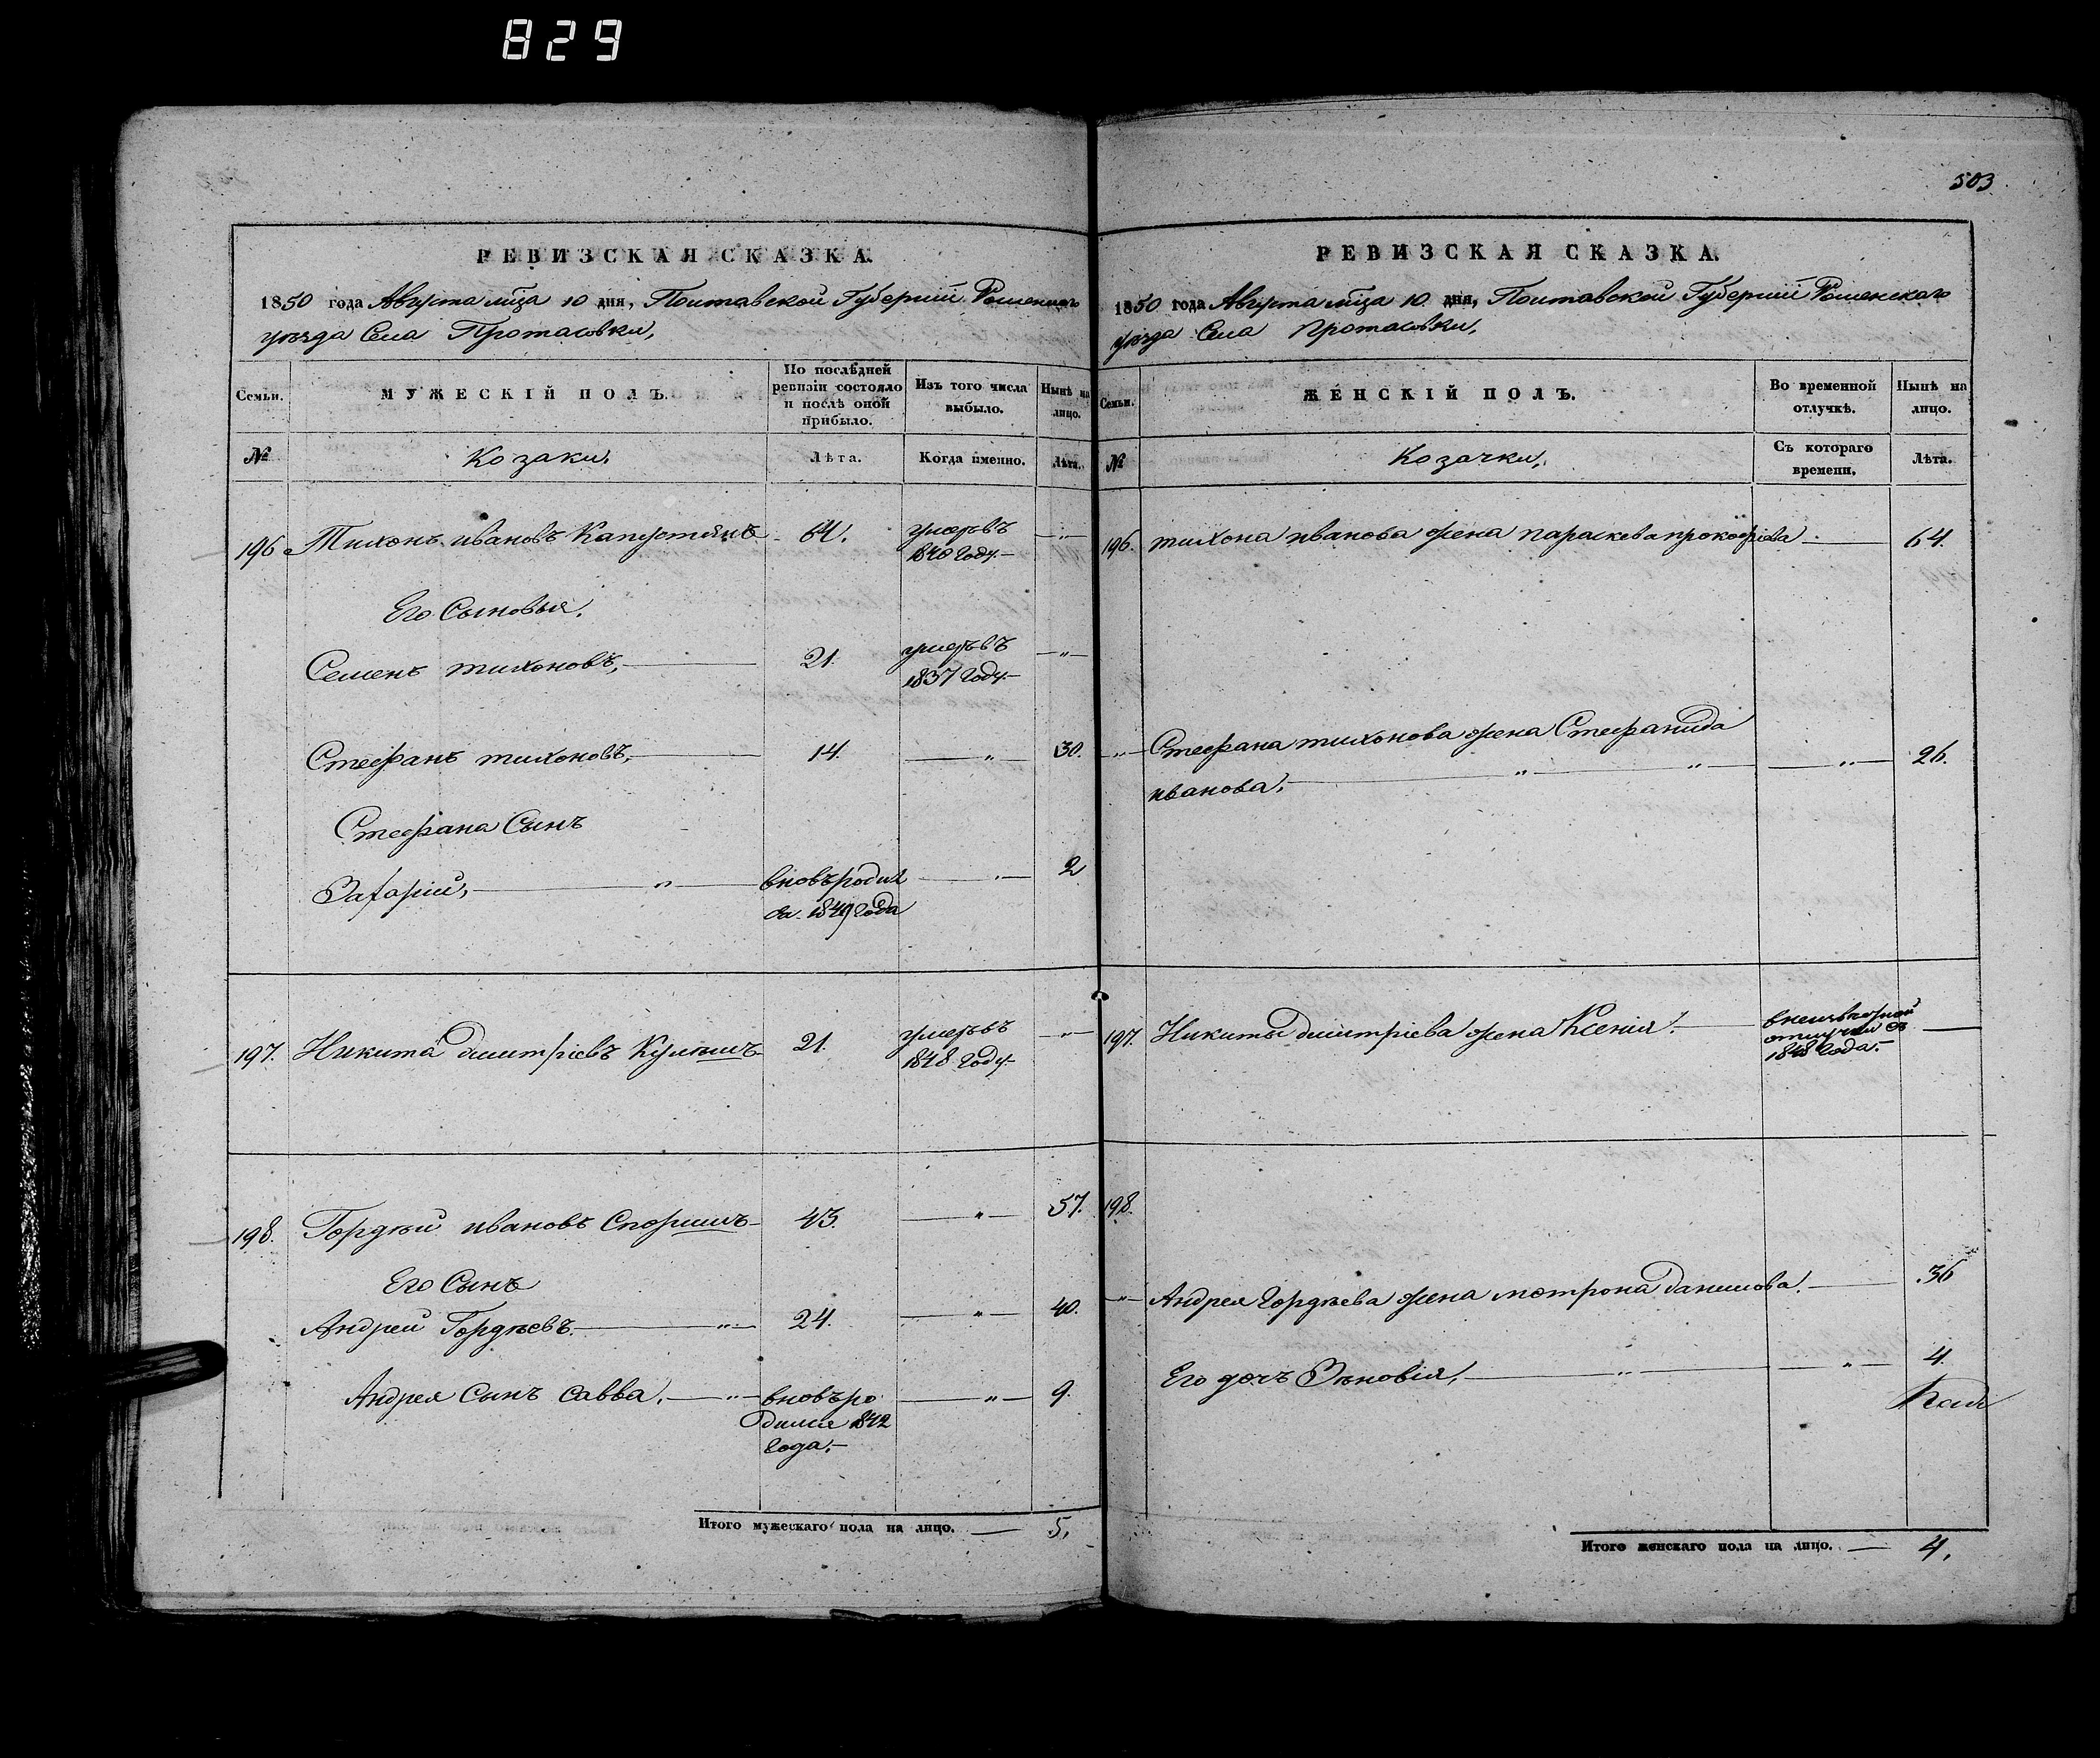 829
РЕВИЗСКАЯ СКАЗКА.
1850 года Августа мца 10 дня, Полтавской Губернии Роменскаго
уѣзда Села Протасовки,
Семьи. МУЖЕСКІЙ ПОЛЪ. По послѣдней ревизіи состояло и послѣ оной прибыло. Изъ того числа выбыло. Нынѣ на лицо.
№ Козаки. Лѣта. Когда именно. Лѣта.
196 Тихонъ ивановъ Капустянъ 64. умеръ въ 1840 Году.
Его Сыновья.
Семенъ тихоновъ, 21. умеръ въ 1837 Году.
Стефанъ тихоновъ, 14. " 30.
Стефана Сынъ
Захарій, " вновь родил
ся 1849 Года 2
197. Никита дмитріевъ 21. умеръ въ 1848 Году.
198. Гордѣй ивановъ 43. " 57.
Его Сынъ
Андрей Гордѣевъ. " 24. " 40.
Андрея Сынъ савва. " вновь ро
дился 1842
Года. " 9.
Итого мужескаго пола на лицо. 5.
503
РЕВИЗСКАЯ СКАЗКА.
1850 года Августа мца 10 дня, Полтавской Губернии Роменскаго
уѣзда Села Протасовки,
Семьи. ЖЕНСКІЙ ПОЛЪ. Во временной отлучкѣ. Нынѣ на лицо.
№ Козачки. Съ котораго времени. Лѣта.
196. тихона иванова жена параскева прокофіева 64.
" Стефана тихонова жена Стефанида
иванова. " " " 26.
197. Никиты дмитріева жена Ксенія. в неизвѣстной
отлучки съ
1848 Года.
198.
" Андрея Гордѣева жена мотрона данилова. 36
Его дочъ Зѣновія, " " 4.
Итого женскаго пола на лицо. 4.